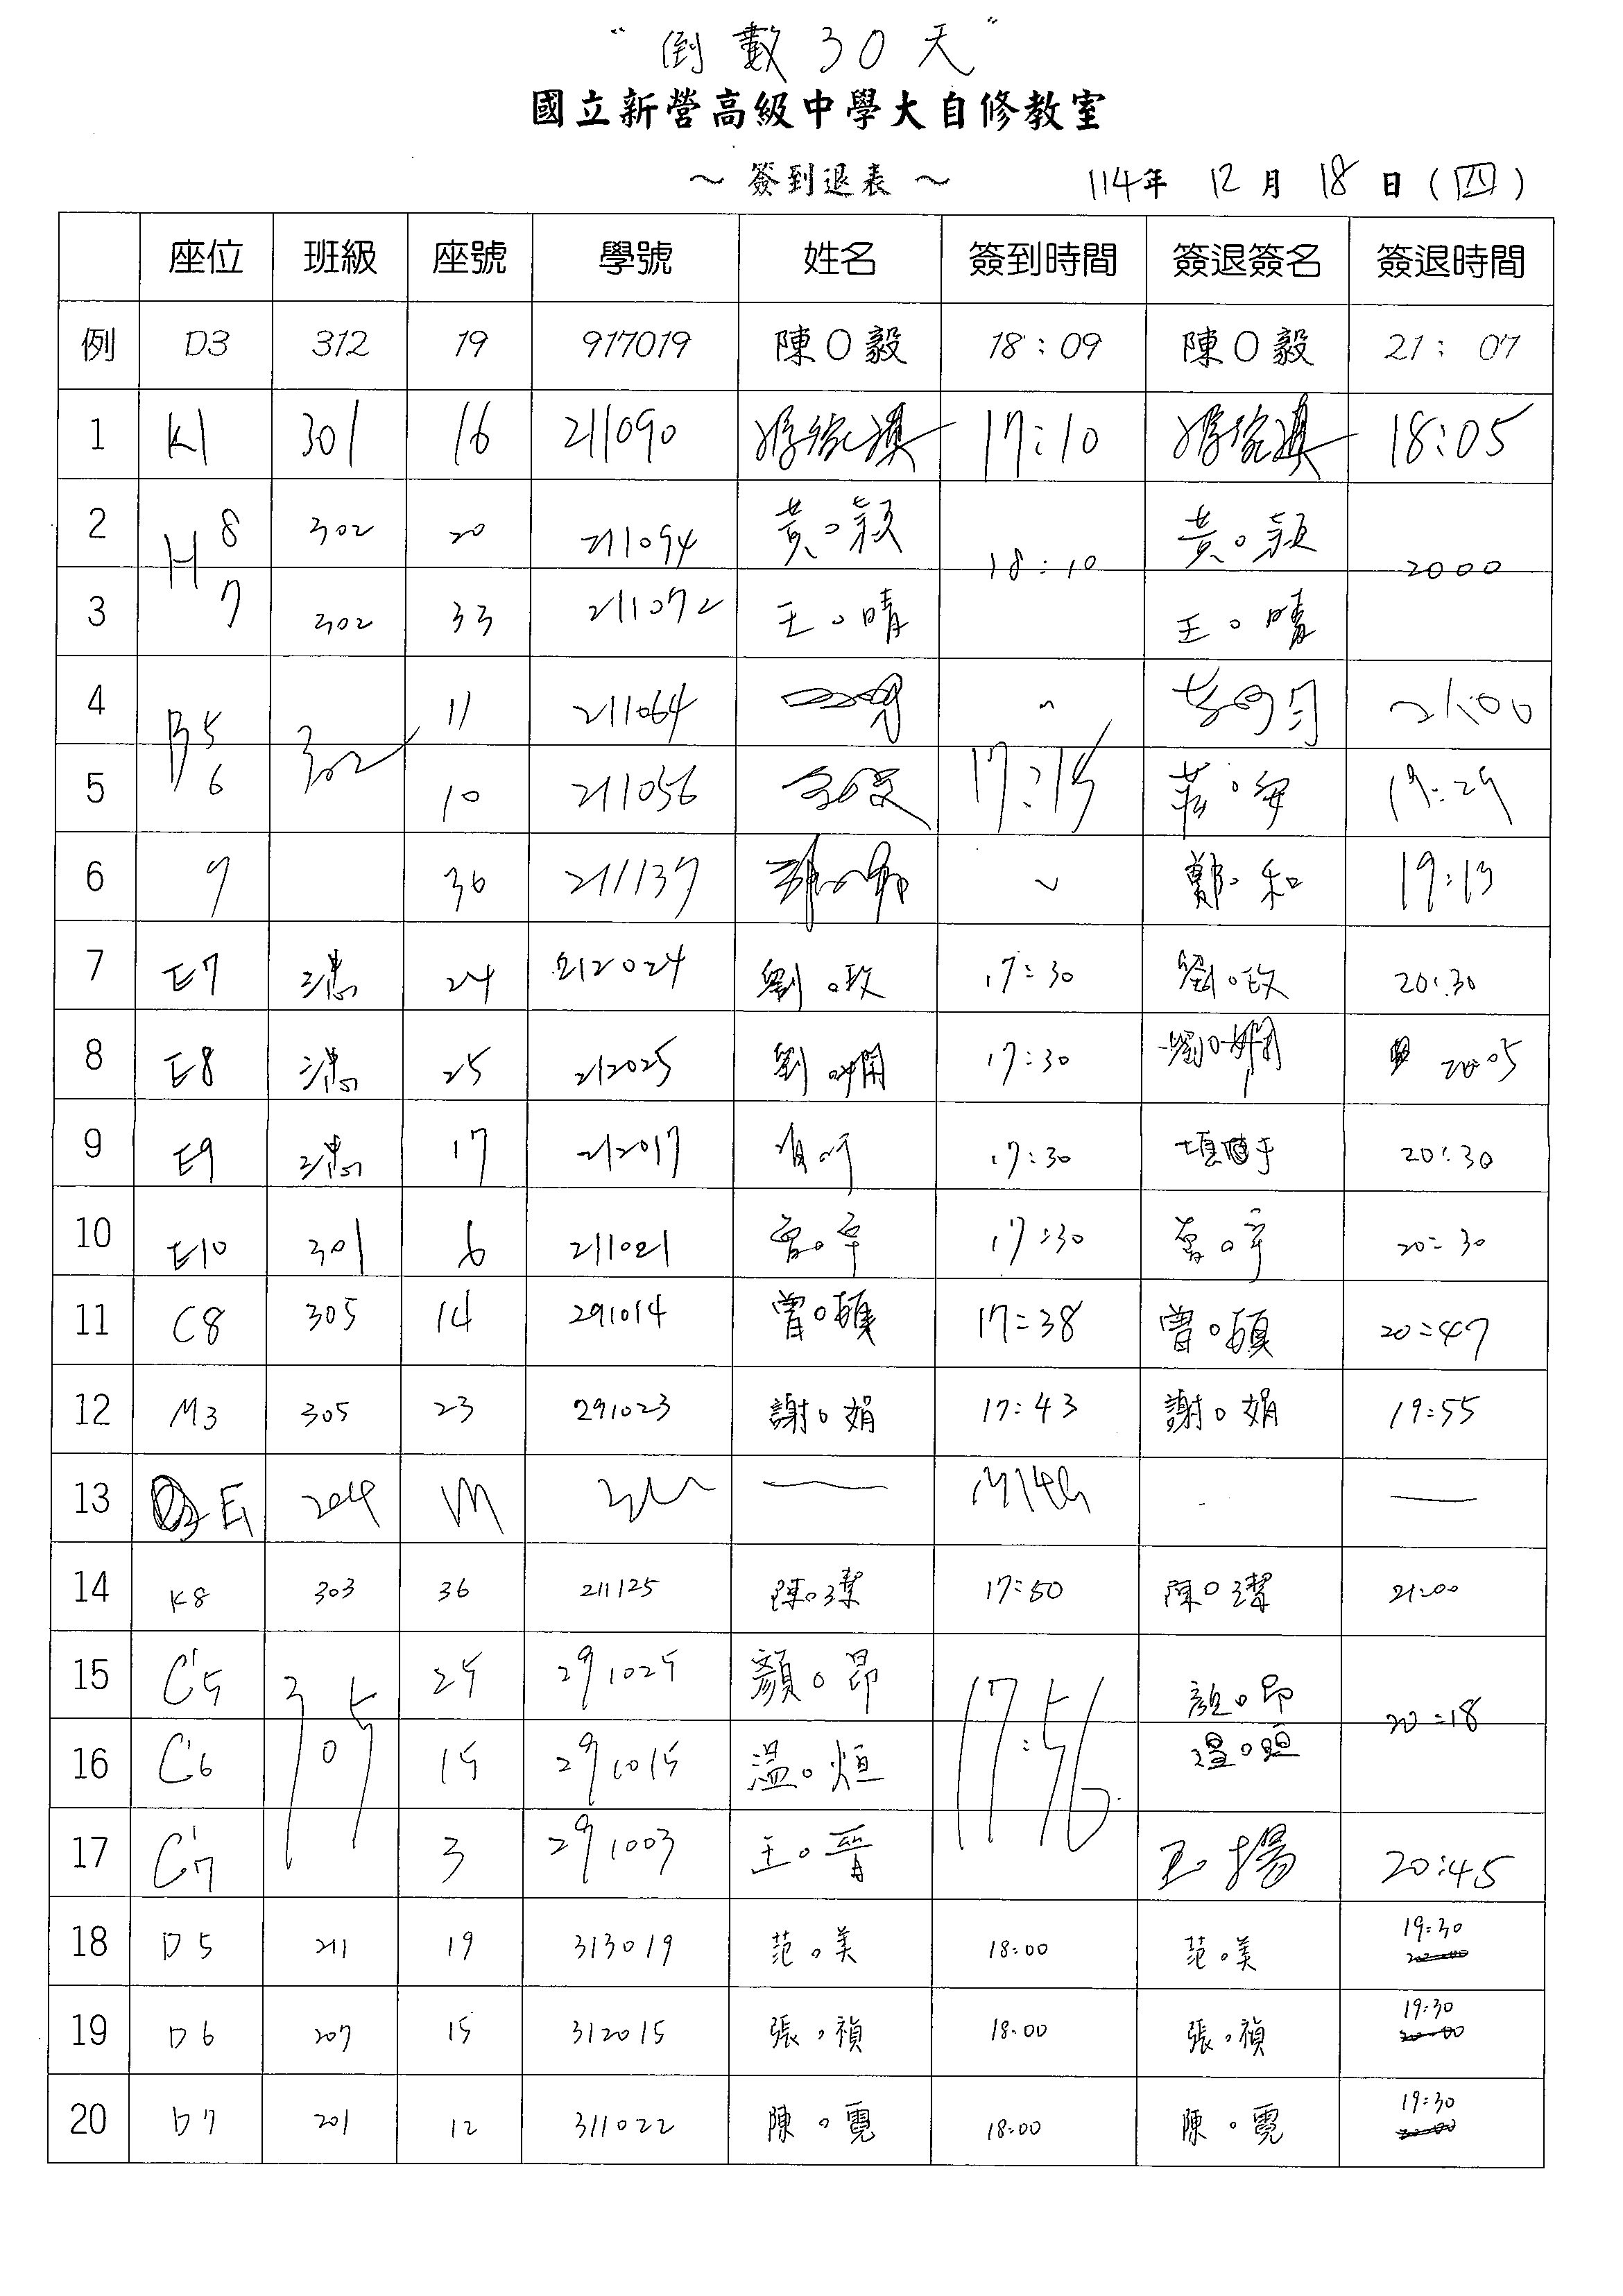 "倒數30天"
國立新營高級中學大自修教室
～簽到退表～ 114年 12月 18日(四)
座位 班級 座號 學號 姓名 簽到時間 簽退簽名 簽退時間
例 D3 312 19 917019 陳O毅 18:09 陳O毅 21:07
1 K1 301 16 211090 17:10 18:05
2 H8 302 20 211094 黃o穎 18:10 黃o穎 2000
3 7 302 33 211072 王o晴 王o晴
4 B5 302 11 211064 ~ 21:00
5 6 10 211056 17:15 莊o安 19:29
6 7 36 211137 ~ 鄭o和 19:13
7 E7 24 212024 劉o玫 17:30 劉o玫 20:30
8 E8 25 212025 劉o嫻 17:30 劉o嫻 20:05
9 E9 17 212017 17:30 20:30
10 E10 301 6 211021 17:30 20:30
11 C8 305 14 291014 曾o頤 17:38 曾o頤 20:47
12 M3 305 23 291023 謝o娟 17:43 謝o娟 19:55
13 E1 204
14 K8 303 36 211125 陳o潔 17:50 陳o潔 21:00
15 C5 305 25 291025 顏o昂 17:56 顏o昂 20:18
16 C6 15 291015 溫o烜 溫o烜
17 C7 3 291003 王o晉 20:45
18 D5 211 19 313019 范o美 18:00 范o美 19:30
19 D6 207 15 312015 張o禎 18:00 張o禎 19:30
20 D7 201 12 311022 陳o霓 18:00 陳o霓 19:30